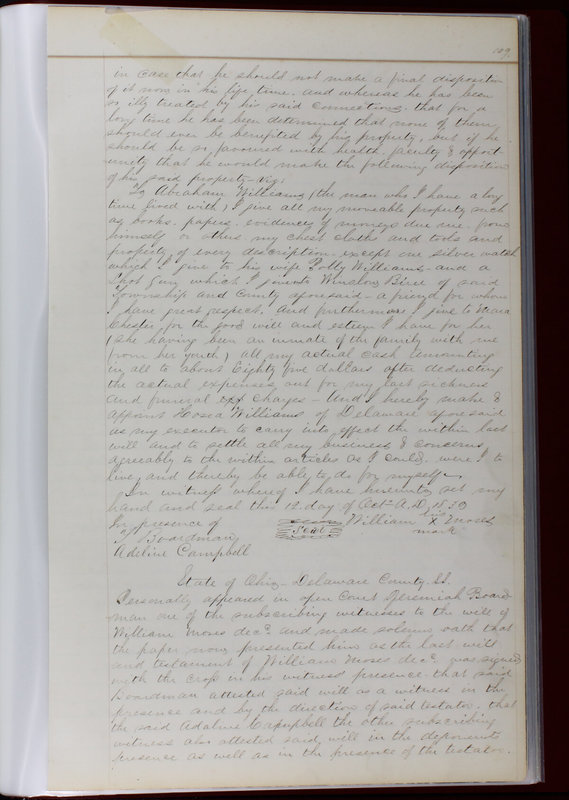 109.
in case that he should not make a final disposition
of it now in his life time. and whereas he has been
so illy treated by his said connections. that for a
long time he has been determined that none of them
should ever be benefited by his property, but if he
should be so favoured with health faculty & opport
unity that he would make the following disposition
of his said property - viz:
To Abraham Williams (the man who I have a long
time lived with) I give all my moveable property such
as books. papers. evidences of moneys due me. from
himself or others. my chest cloths and tools and
property of every description. except one silver watch
which I give to his wife Polly Williams - and a
Shot gun which I give to Winslow Bierce of said
Township and County aforesaid - a friend for whom
I have great respect. And furthermore I give to Maria
Chester, for the good will and esteem I have for her
(she having been an inmate of the family with me
from her youth) all my actual cash amounting
in all to about Eighty five dollars after deducting
the actual expenses out for my last sickness
and funeral charges - And I hereby make &
appoint Hosea Williams of Delaware aforesaid
as my executor to carry into effect the within last
will and to settle all my business & concerns
agreeably to the within articles as I could, were I to
live, and thereby be able to do for myself.
In witness whereof I have hereunto set my
hand and seal this 12 day of Oct - A.D. 18
In presence of William his X Moses
J Boardman Seal mark
Adeline Campbell
State of Ohio - Delaware County. SS.
Personally appeared in open Court Jeremiah Board
man one of the subscribing witnesses to the will of
William Moses decd. and made solemn oath that
the paper now presented him as the last will
and testament of William Moses decd. was signed
with the cross in his witness' presence. that said
Boardman attested said will as a witness in the
presence and by the direction of said testator. that
the said Adaline Campbell the other subscribing
witness also attested said will in the deponents
presence as well as in the presence of the testator.